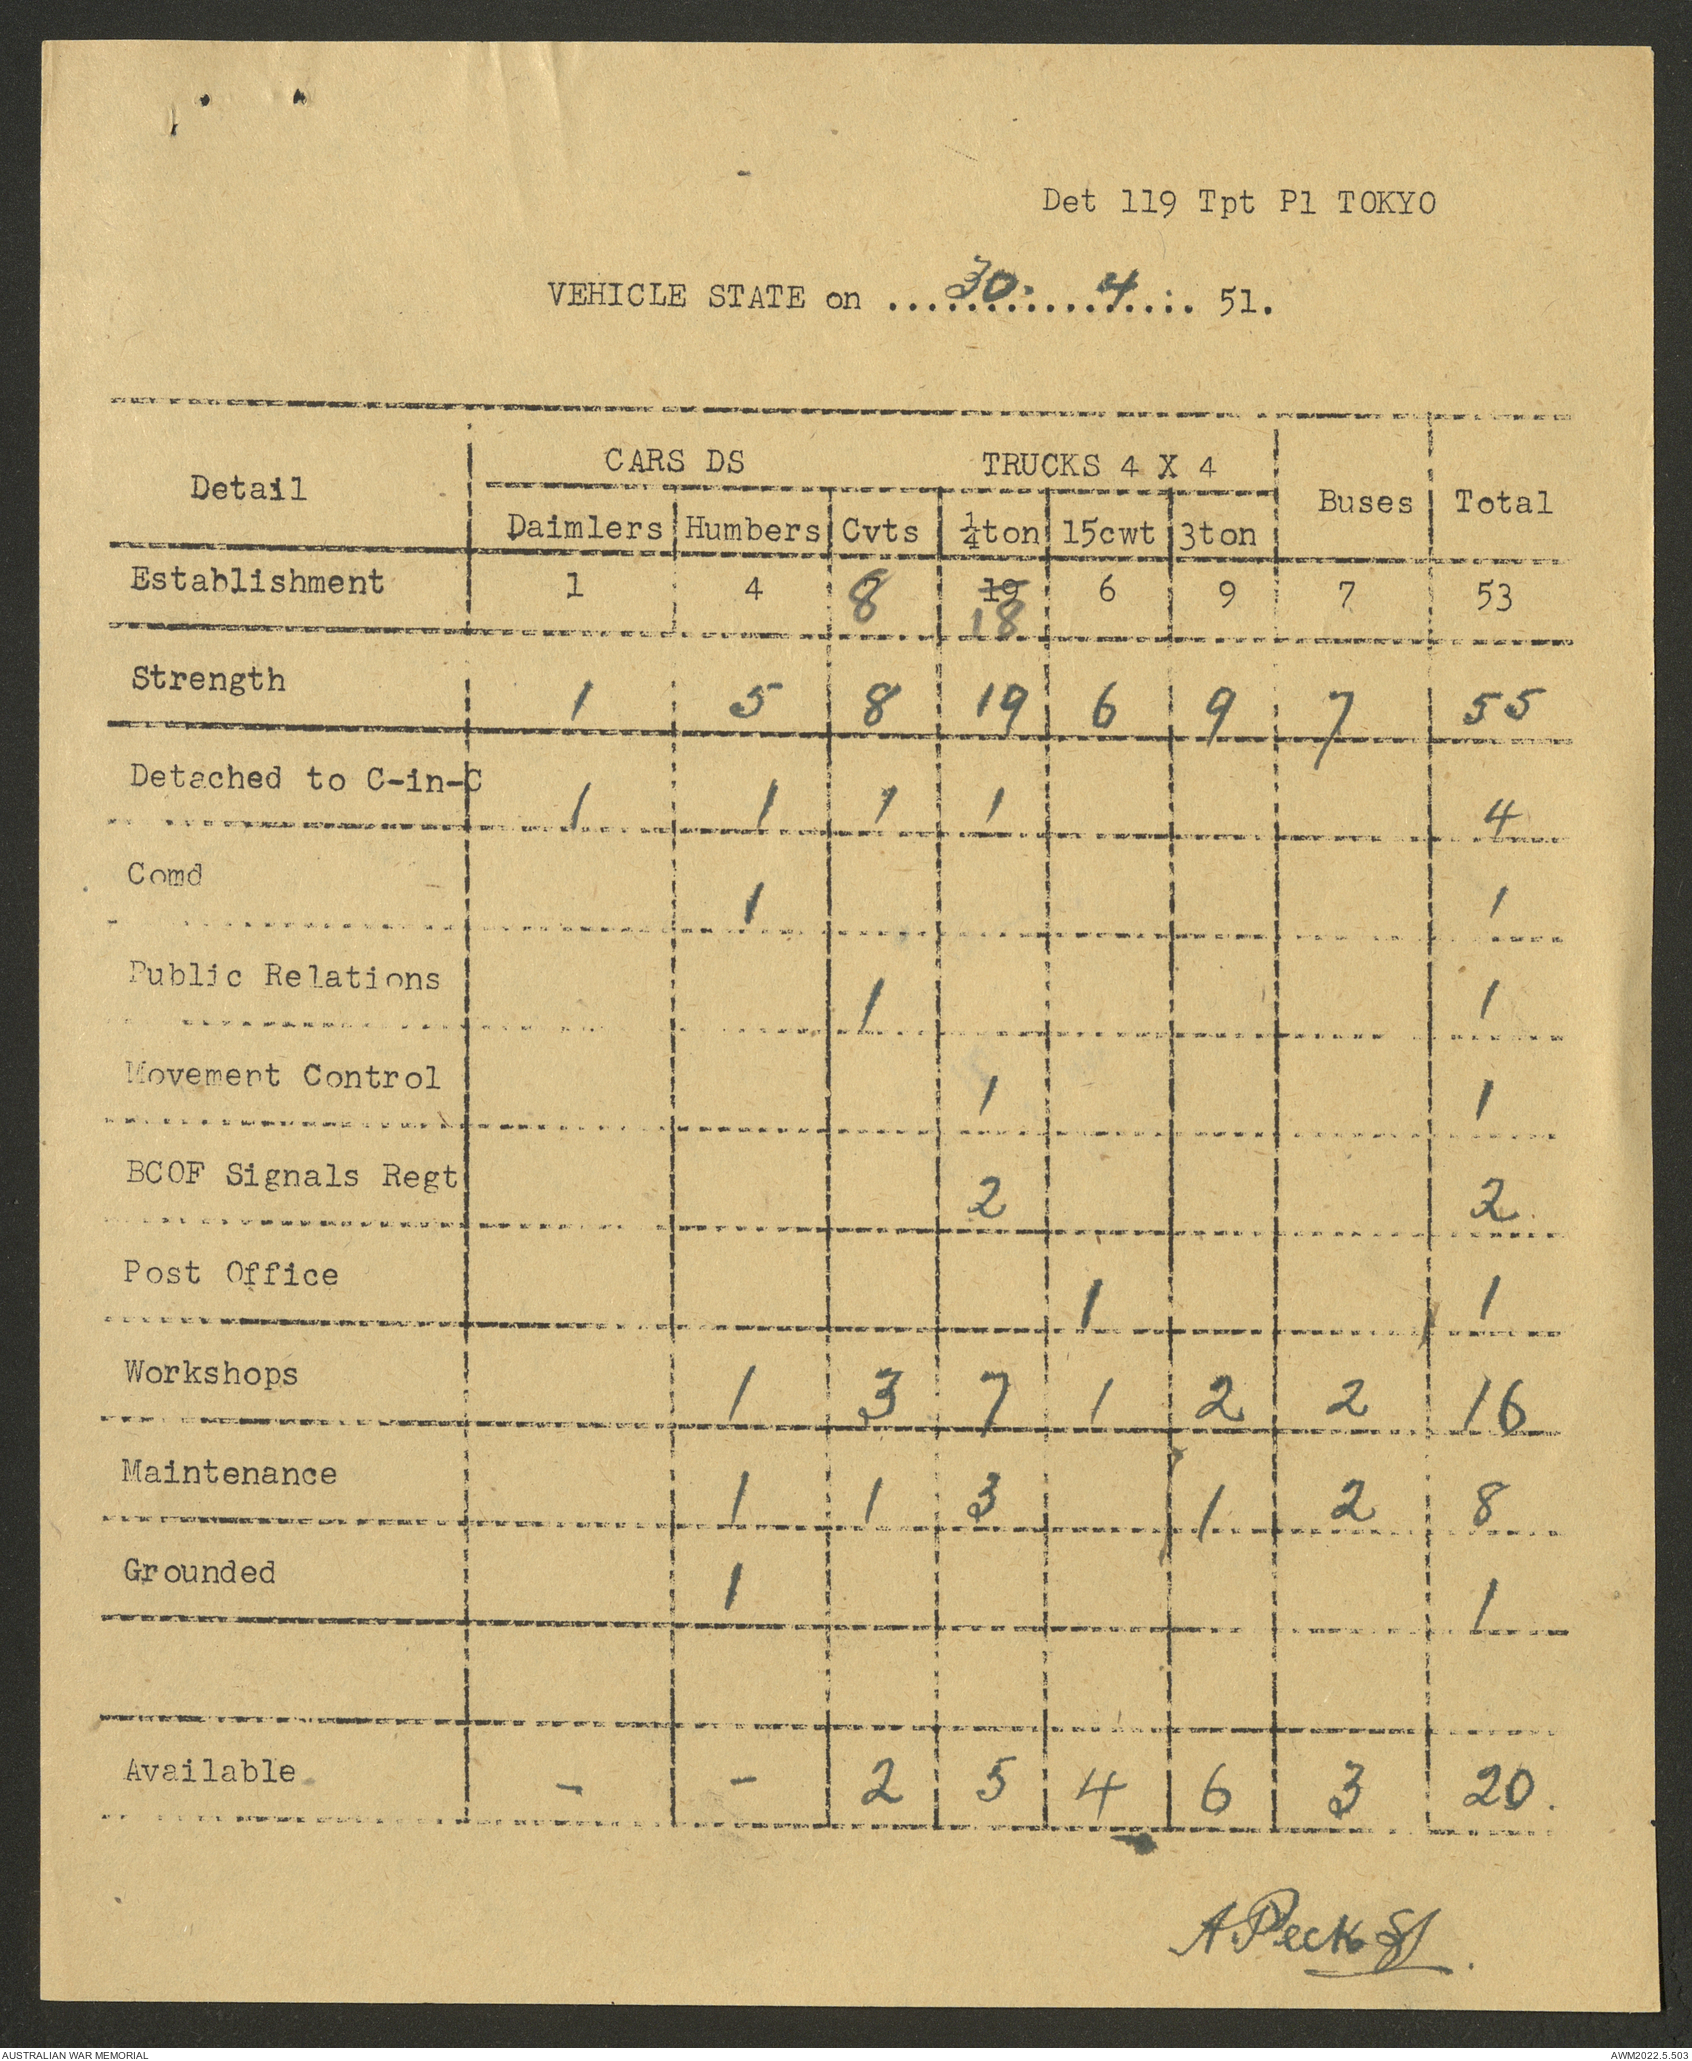 Det 119 Tpt Pl TOKYO
VEHICLE STATE on ....30....4.... 51.
Detail CARS DS TRUCKS 4 X 4 Buses Total
Daimlers Humbers Cvts ¼ton 15cwt 3ton
Establishment 1 4 8 19 6 9 7 53
18
Strength 1 5 8 19 6 9 7 55
Detached to C-in-C 1 1 1 1 4
Comd 1 1
Public Relations 1 1
Movement Control 1 1
BCOF Signals Regt 2 2
Post Office 1 1
Workshops 1 3 7 1 2 2 16
Maintenance 1 1 3 1 2 8
Grounded 1 1
Available - - 2 5 4 6 3 20.
A Peck
AUSTRALIAN WAR MEMORIAL AWM2022.5.503